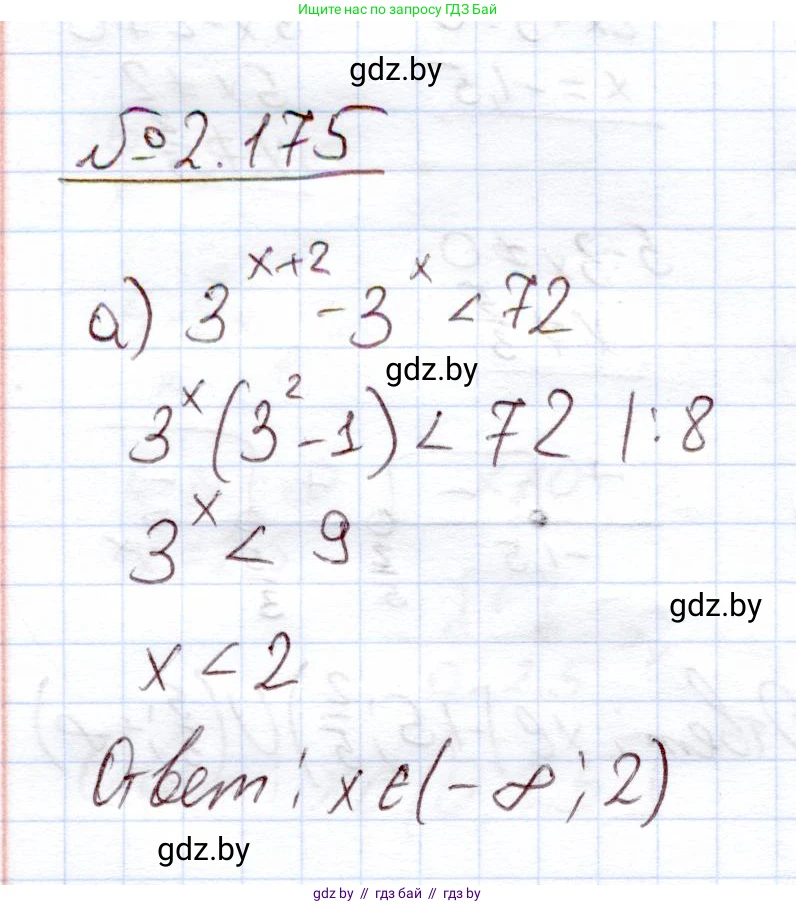 Ищите нас по запросу ГДЗ Бай
gdz.by
№ 2.175
а) 3^(x+2) - 3^x < 72
gdz.by
3^x (3^2 - 1) < 72 | : 8
3^x < 9
gdz.by
x < 2
Ответ: x ∈ (-∞; 2)
gdz.by
gdz by // гдз бай // гдз by